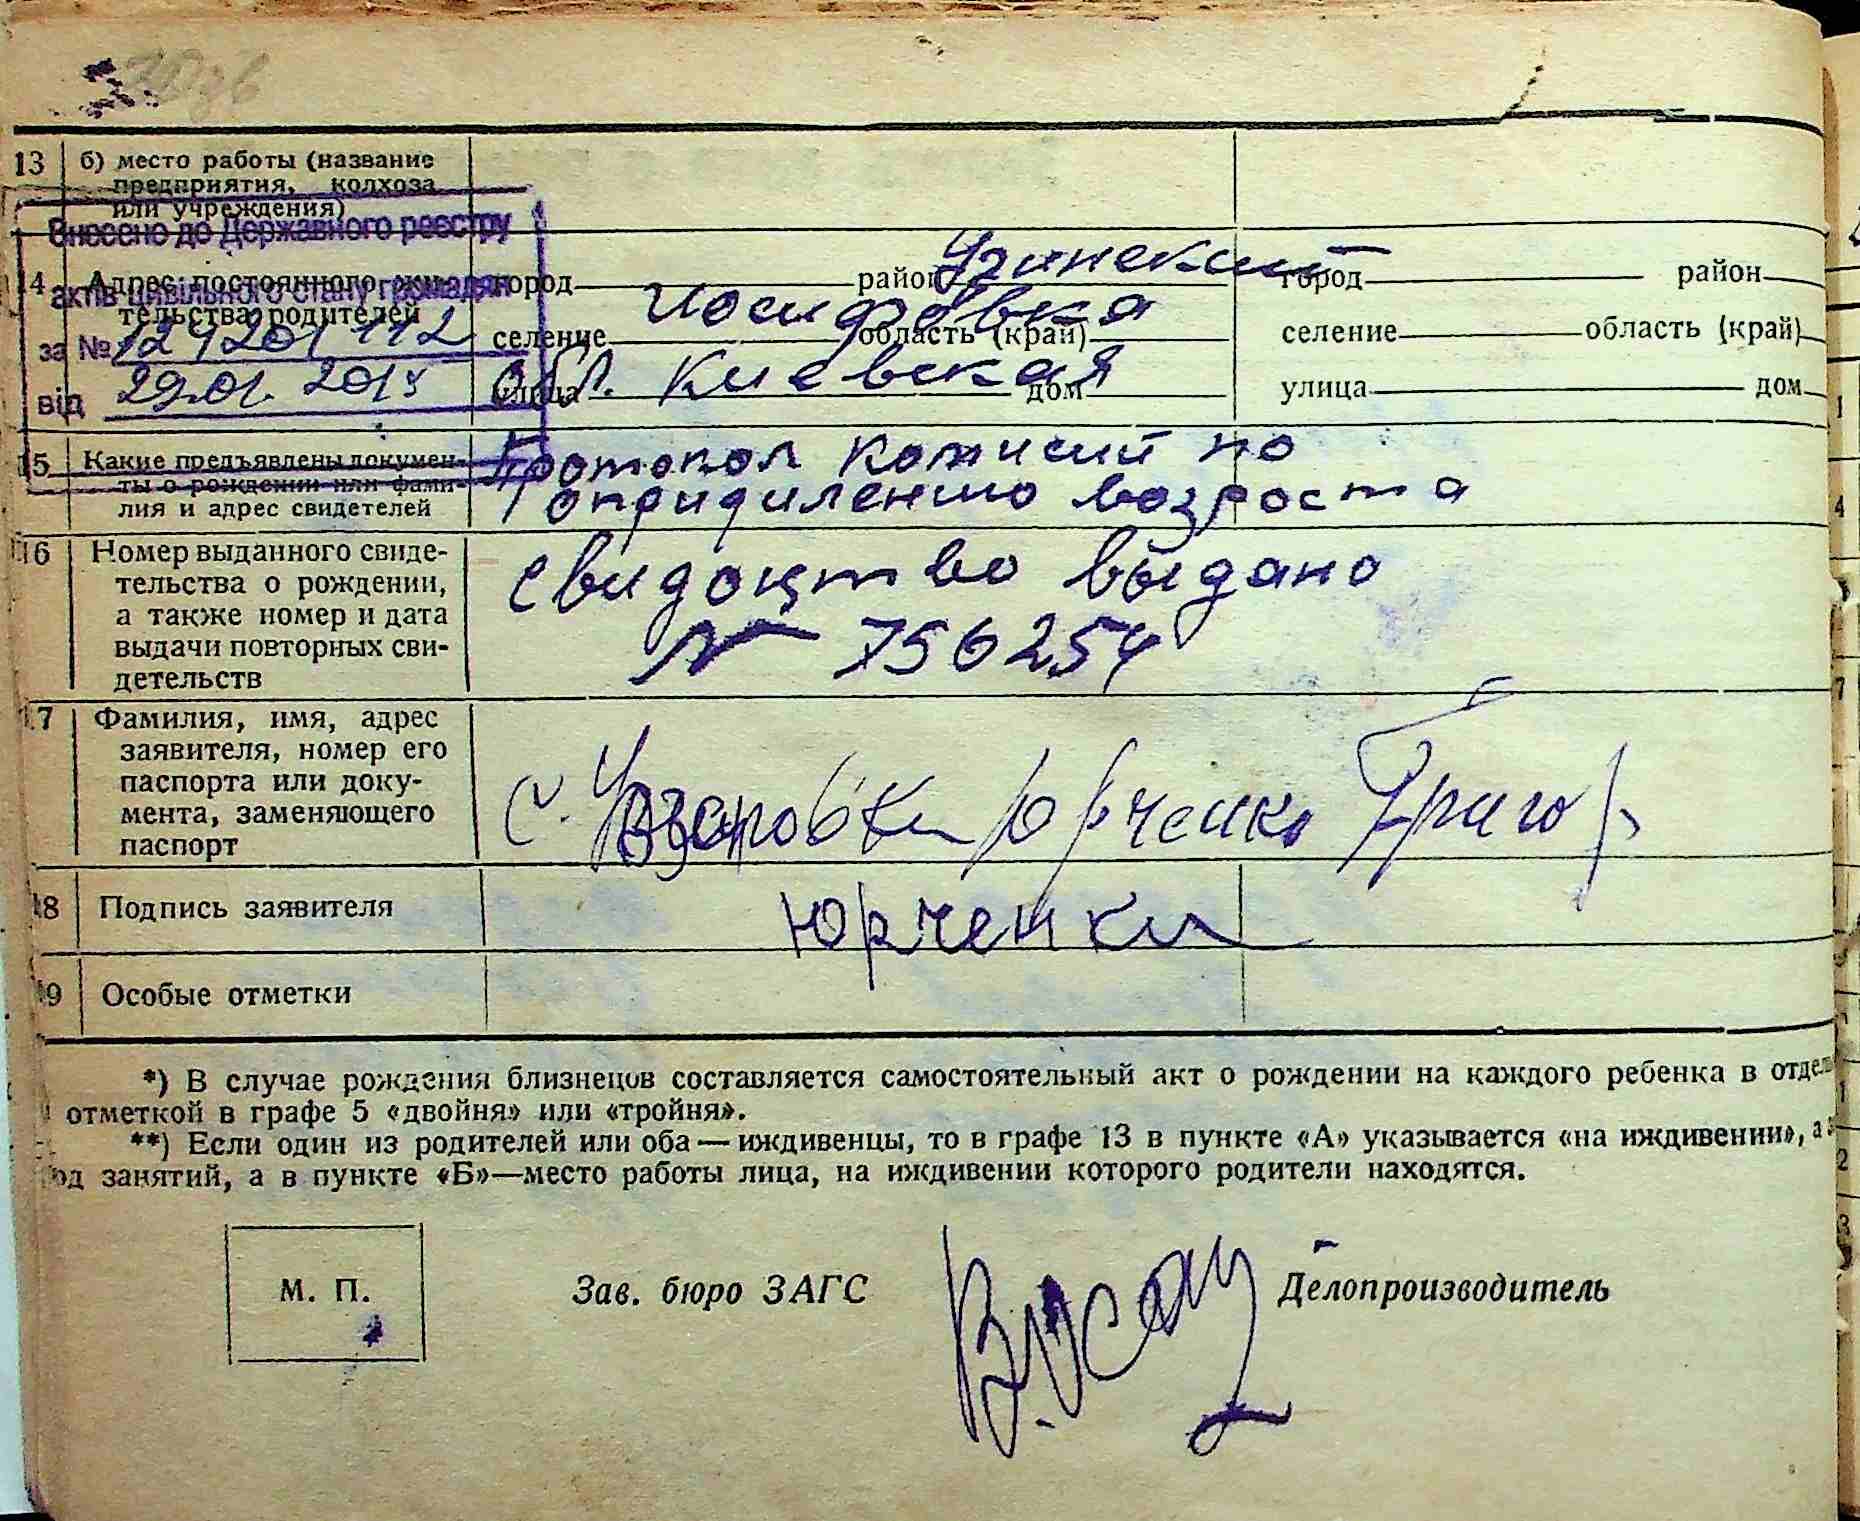 13 б) место работы (название
предприятия, колхоза
или учреждения)
Внесено до Державного реєстру
актів цивільного стану громадян
за № 124201112
від 29.01. 201
14 Адрес постоянного жи-
тельства родителей
город район Узинский
селение Иосиповка область (край)
улица обл. Киевская дом
город район
селение область (край)
улица дом
15 Какие предъявлены докумен-
ты о рождении или фами-
лия и адрес свидетелей
Протокол комисий по
опридилению возроста
16 Номер выданного свиде-
тельства о рождении,
а также номер и дата
выдачи повторных сви-
детельств
свидоцтво выдано
№ 756254
17 Фамилия, имя, адрес
заявителя, номер его
паспорта или доку-
мента, заменяющего
паспорт
с. Юрченко Григор
18 Подпись заявителя
Юрченко
19 Особые отметки
*) В случае рождения близнецов составляется самостоятельный акт о рождении на каждого ребенка в отдел
отметкой в графе 5 «двойня» или «тройня».
**) Если один из родителей или оба — иждивенцы, то в графе 13 в пункте «А» указывается «на иждивении», а
од занятий, а в пункте «Б»—место работы лица, на иждивении которого родители находятся.
М. П.
Зав. бюро ЗАГС
Делопроизводитель